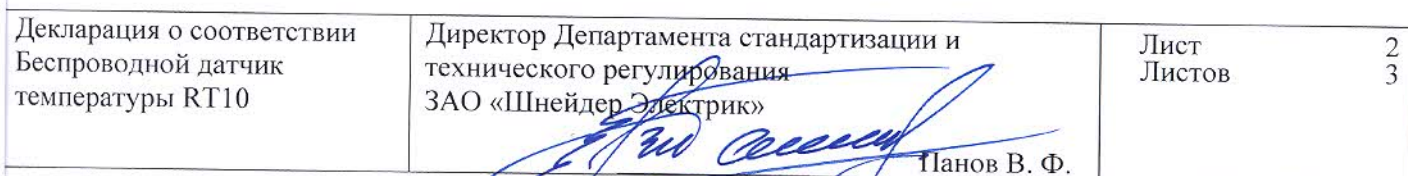 Декларация о соответствии
Беспроводной датчик
температуры RT10
Директор Департамента стандартизации и
технического регулирования
ЗАО «Шнейдер Электрик»
Панов В. Ф.
Лист 2
Листов 3